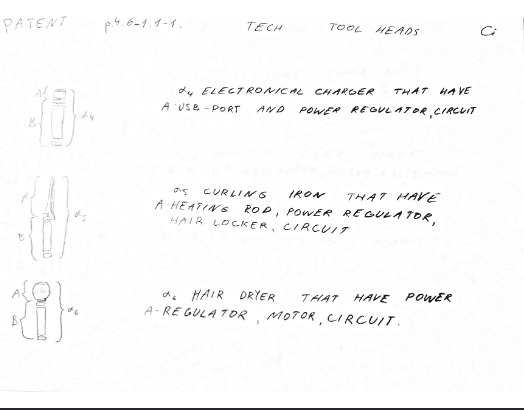 PATENT p.4.6-1.1-1. TECH TOOL HEADS Ci
A B α4
α4 ELECTRONICAL CHARGER THAT HAVE
A USB-PORT AND POWER REGULATOR, CIRCUIT
A B α5
α5 CURLING IRON THAT HAVE
A-HEATING ROD, POWER REGULATOR,
HAIR LOCKER, CIRCUIT
A B α6
α6 HAIR DRYER THAT HAVE POWER
A-REGULATOR, MOTOR, CIRCUIT.